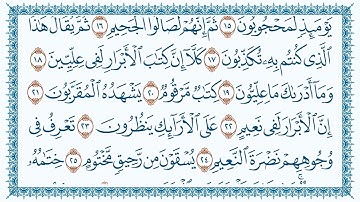 يَوْمَئِذٍ لَمَحْجُوبُونَ ١٥ ثُمَّ إِنَّهُمْ لَصَالُوا الْجَحِيمِ ١٦ ثُمَّ يُقَالُ هَٰذَا
الَّذِي كُنتُم بِهِ تُكَذِّبُونَ ١٧ كَلَّا إِنَّ كِتَٰبَ الْأَبْرَارِ لَفِي عِلِّيِّينَ ١٨
وَمَا أَدْرَىٰكَ مَا عِلِّيُّونَ ١٩ كِتَٰبٌ مَّرْقُومٌ ٢٠ يَشْهَدُهُ الْمُقَرَّبُونَ ٢١
إِنَّ الْأَبْرَارَ لَفِي نَعِيمٍ ٢٢ عَلَى الْأَرَائِكِ يَنظُرُونَ ٢٣ تَعْرِفُ فِي
وُجُوهِهِمْ نَضْرَةَ النَّعِيمِ ٢٤ يُسْقَوْنَ مِن رَّحِيقٍ مَّخْتُومٍ ٢٥ خِتَٰمُهُ